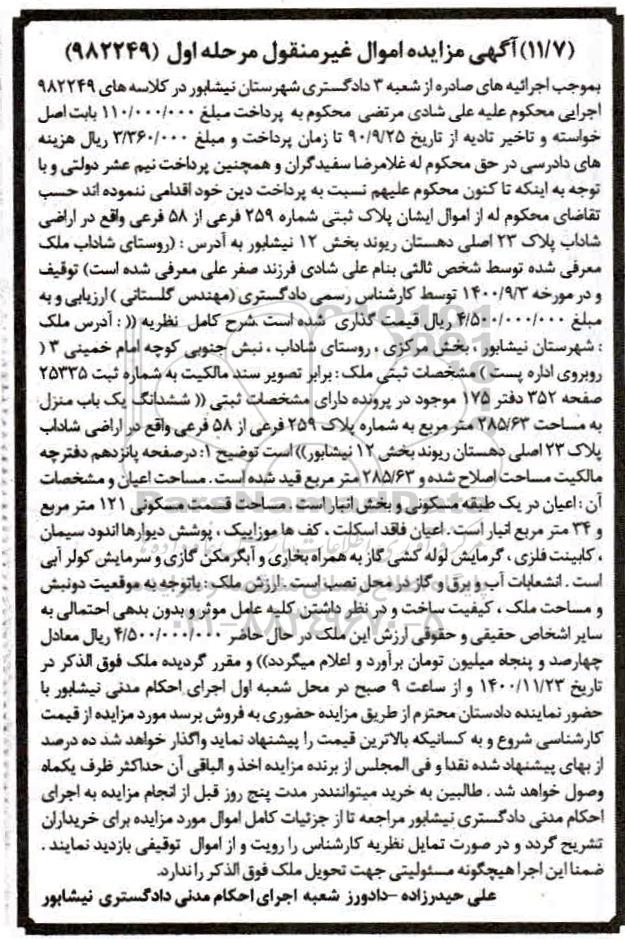 (۱۱/۷) آگهی مزایده اموال غیرمنقول مرحله اول (۹۸۲۲۴۹)
بموجب اجرائیه های صادره از شعبه ۳ دادگستری شهرستان نیشابور در کلاسه های ۹۸۲۲۴۹
اجرایی محکوم علیه علی شادی مرتضی محکوم به پرداخت مبلغ ۱۱۰/۰۰۰/۰۰۰ بابت اصل
خواسته و تاخیر تادیه از تاریخ ۹۰/۹/۲۵ تا زمان پرداخت و مبلغ ۳/۳۶۰/۰۰۰ ریال هزینه
های دادرسی در حق محکوم له غلامرضا سفیدگران و همچنین پرداخت نیم عشر دولتی و با
توجه به اینکه تا کنون محکوم علیهم نسبت به پرداخت دین خود اقدامی ننموده اند حسب
تقاضای محکوم له از اموال ایشان پلاک ثبتی شماره ۲۵۹ فرعی از ۵۸ فرعی واقع در اراضی
شاداب پلاک ۲۳ اصلی دهستان ریوند بخش ۱۲ نیشابور به آدرس : (روستای شاداب ملک
معرفی شده توسط شخص ثالثی بنام علی شادی فرزند صفر علی معرفی شده است) توقیف
و در مورخه ۱۴۰۰/۹/۳ توسط کارشناس رسمی دادگستری (مهندس گلستانی ) ارزیابی و به
مبلغ ۴/۵۰۰/۰۰۰/۰۰۰ ریال قیمت گذاری شده است .شرح کامل نظریه (( : آدرس ملک
: شهرستان نیشابور ، بخش مرکزی ، روستای شاداب ، نبش جنوبی کوچه امام خمینی ۳ (
روبروی اداره پست ) مشخصات ثبتی ملک : برابر تصویر سند مالکیت به شماره ثبت ۲۵۳۳۵
صفحه ۳۵۲ دفتر ۱۷۵ موجود در پرونده دارای مشخصات ثبتی (( ششدانگ یک باب منزل
به مساحت ۲۸۵/۶۳ متر مربع به شماره پلاک ۲۵۹ فرعی از ۵۸ فرعی واقع در اراضی شاداب
پلاک ۲۳ اصلی دهستان ریوند بخش ۱۲ نیشابور)) است توضیح ۱: درصفحه پانزدهم دفترچه
مالکیت مساحت اصلاح شده و ۲۸۵/۶۳ متر مربع قید شده است . مساحت اعیان و مشخصات
آن : اعیان در یک طبقه مسکونی و بخش انبار است . مساحت قسمت مسکونی ۱۲۱ متر مربع
و ۳۴ متر مربع انبار است . اعیان فاقد اسکلت ، کف ها موزاییک ، پوشش دیوارها اندود سیمان
، کابینت فلزی ، گرمایش لوله کشی گاز به همراه بخاری و آبگرمکن گازی و سرمایش کولر آبی
است . انشعابات آب و برق و گاز در محل نصب است . ارزش ملک : باتوجه به موقعیت دونبش
و مساحت ملک ، کیفیت ساخت و در نظر داشتن کلیه عامل موثر و بدون بدهی احتمالی به
سایر اشخاص حقیقی و حقوقی ارزش این ملک در حال حاضر ۴/۵۰۰/۰۰۰/۰۰۰ ریال معادل
چهارصد و پنجاه میلیون تومان برآورد و اعلام میگردد)) و مقرر گردیده ملک فوق الذکر در
تاریخ ۱۴۰۰/۱۱/۲۳ و از ساعت ۹ صبح در محل شعبه اول اجرای احکام مدنی نیشابور با
حضور نماینده دادستان محترم از طریق مزایده حضوری به فروش برسد مورد مزایده از قیمت
کارشناسی شروع و به کسانیکه بالاترین قیمت را پیشنهاد نماید واگذار خواهد شد ده درصد
از بهای پیشنهاد شده نقدا و فی المجلس از برنده مزایده اخذ و الباقی آن حداکثر ظرف یکماه
وصول خواهد شد . طالبین به خرید میتواننددر مدت پنج روز قبل از انجام مزایده به اجرای
احکام مدنی دادگستری نیشابور مراجعه تا از جزئیات کامل اموال مورد مزایده برای خریداران
تشریح گردد و در صورت تمایل نظریه کارشناس را رویت و از اموال توقیفی بازدید نمایند .
ضمنا این اجرا هیچگونه مسئولیتی جهت تحویل ملک فوق الذکر را ندارد.
علی حیدرزاده –دادورز شعبه اجرای احکام مدنی دادگستری نیشابور
ParsNamadData
۰۲۱-۸۸۳۴۹۶۷۰-۵